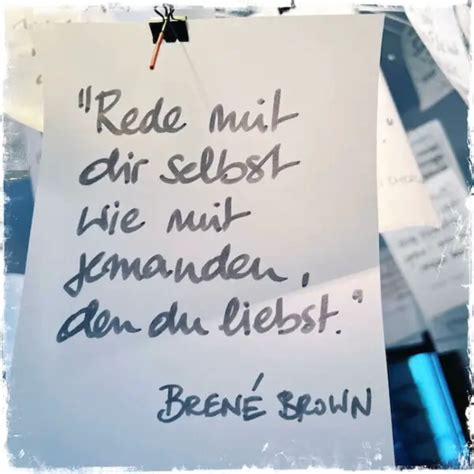 "Rede mit
dir selbst
wie mit
jemanden,
den du liebst."
BRENÉ BROWN